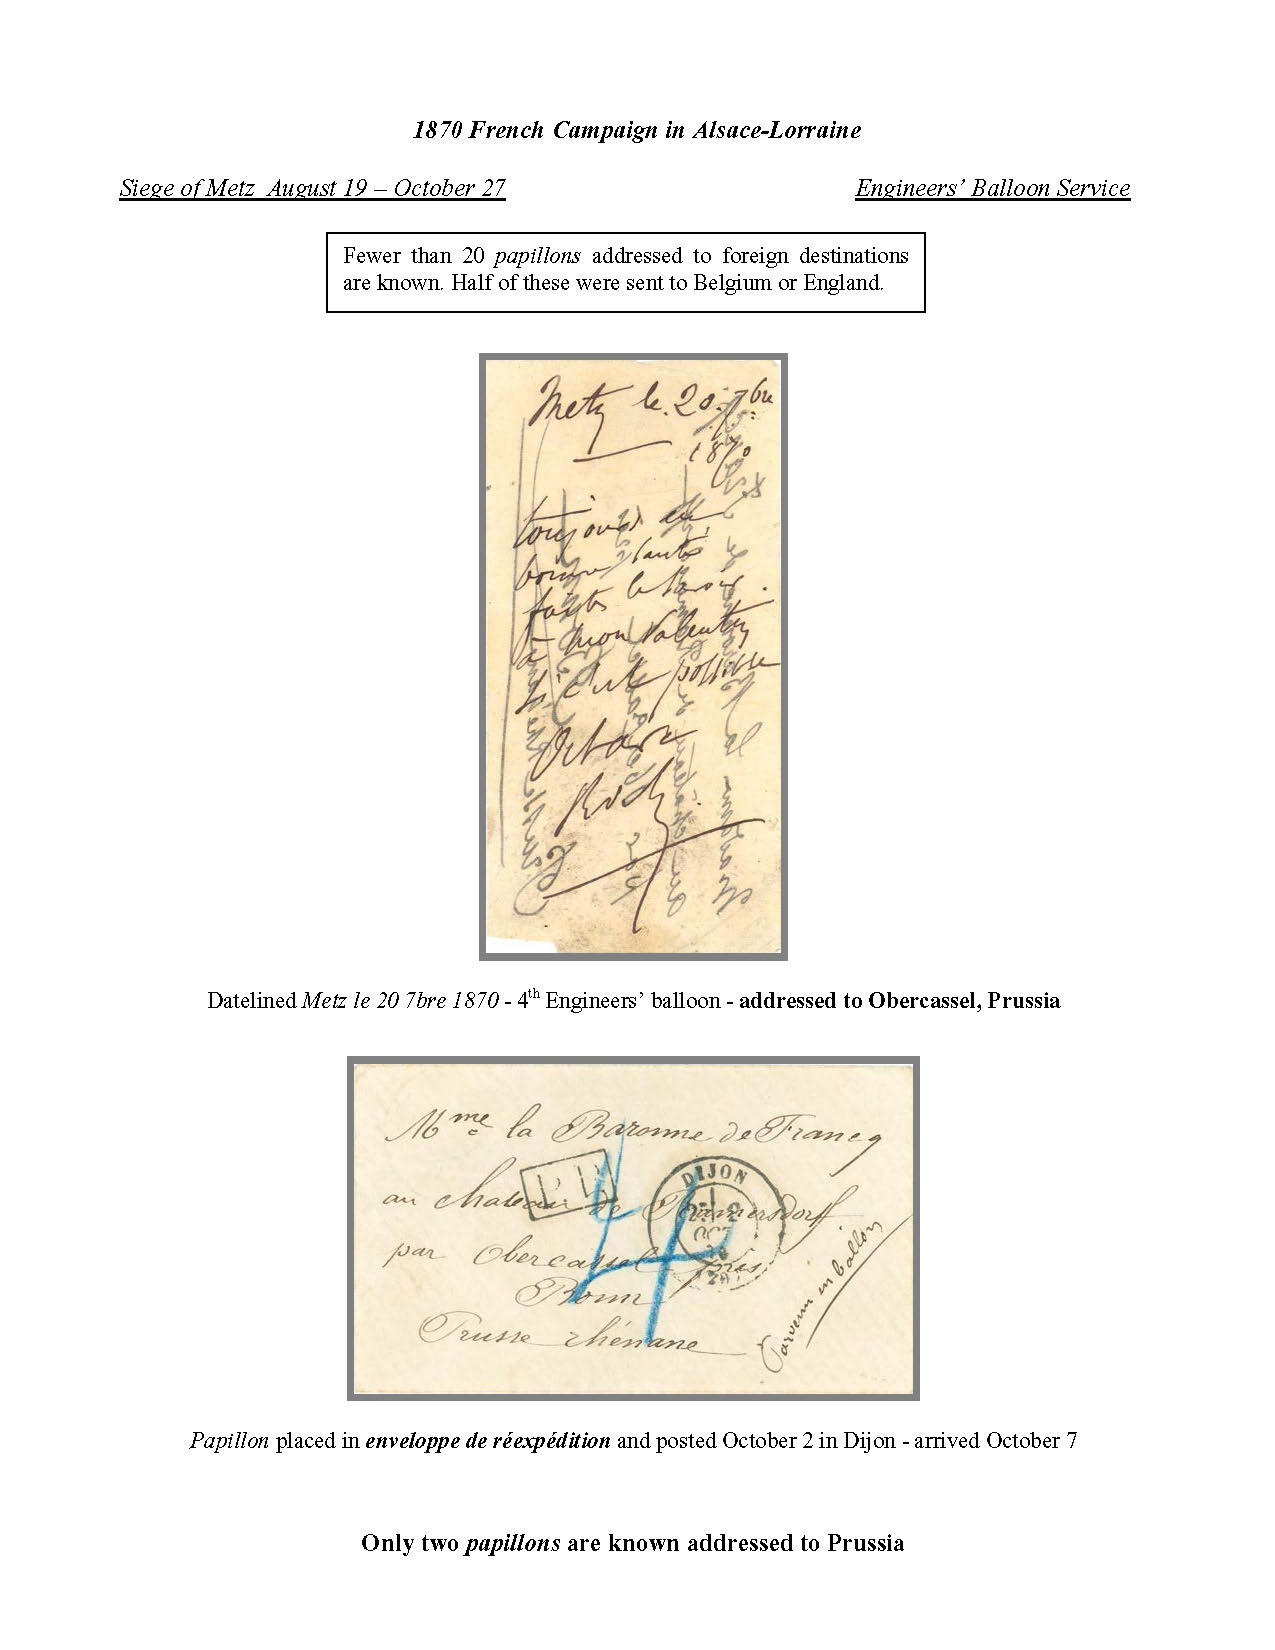 1870 French Campaign in Alsace-Lorraine
Siege of Metz August 19 – October 27
Engineers’ Balloon Service
Fewer than 20 papillons addressed to foreign destinations
are known. Half of these were sent to Belgium or England.
Metz le 20 7bre
1870
toujours en
bonne santé
faites le savoir
à mon Valentin
si c'est possible
Datelined Metz le 20 7bre 1870 - 4th Engineers’ balloon - addressed to Obercassel, Prussia
Mme la Baronne de Francq
PD
DIJON
au chateau de Ramersdorff
2
OCT
par Obercassel près
Bonn
Prusse rhénane
Parvenu en ballon
4
Papillon placed in enveloppe de réexpédition and posted October 2 in Dijon - arrived October 7
Only two papillons are known addressed to Prussia